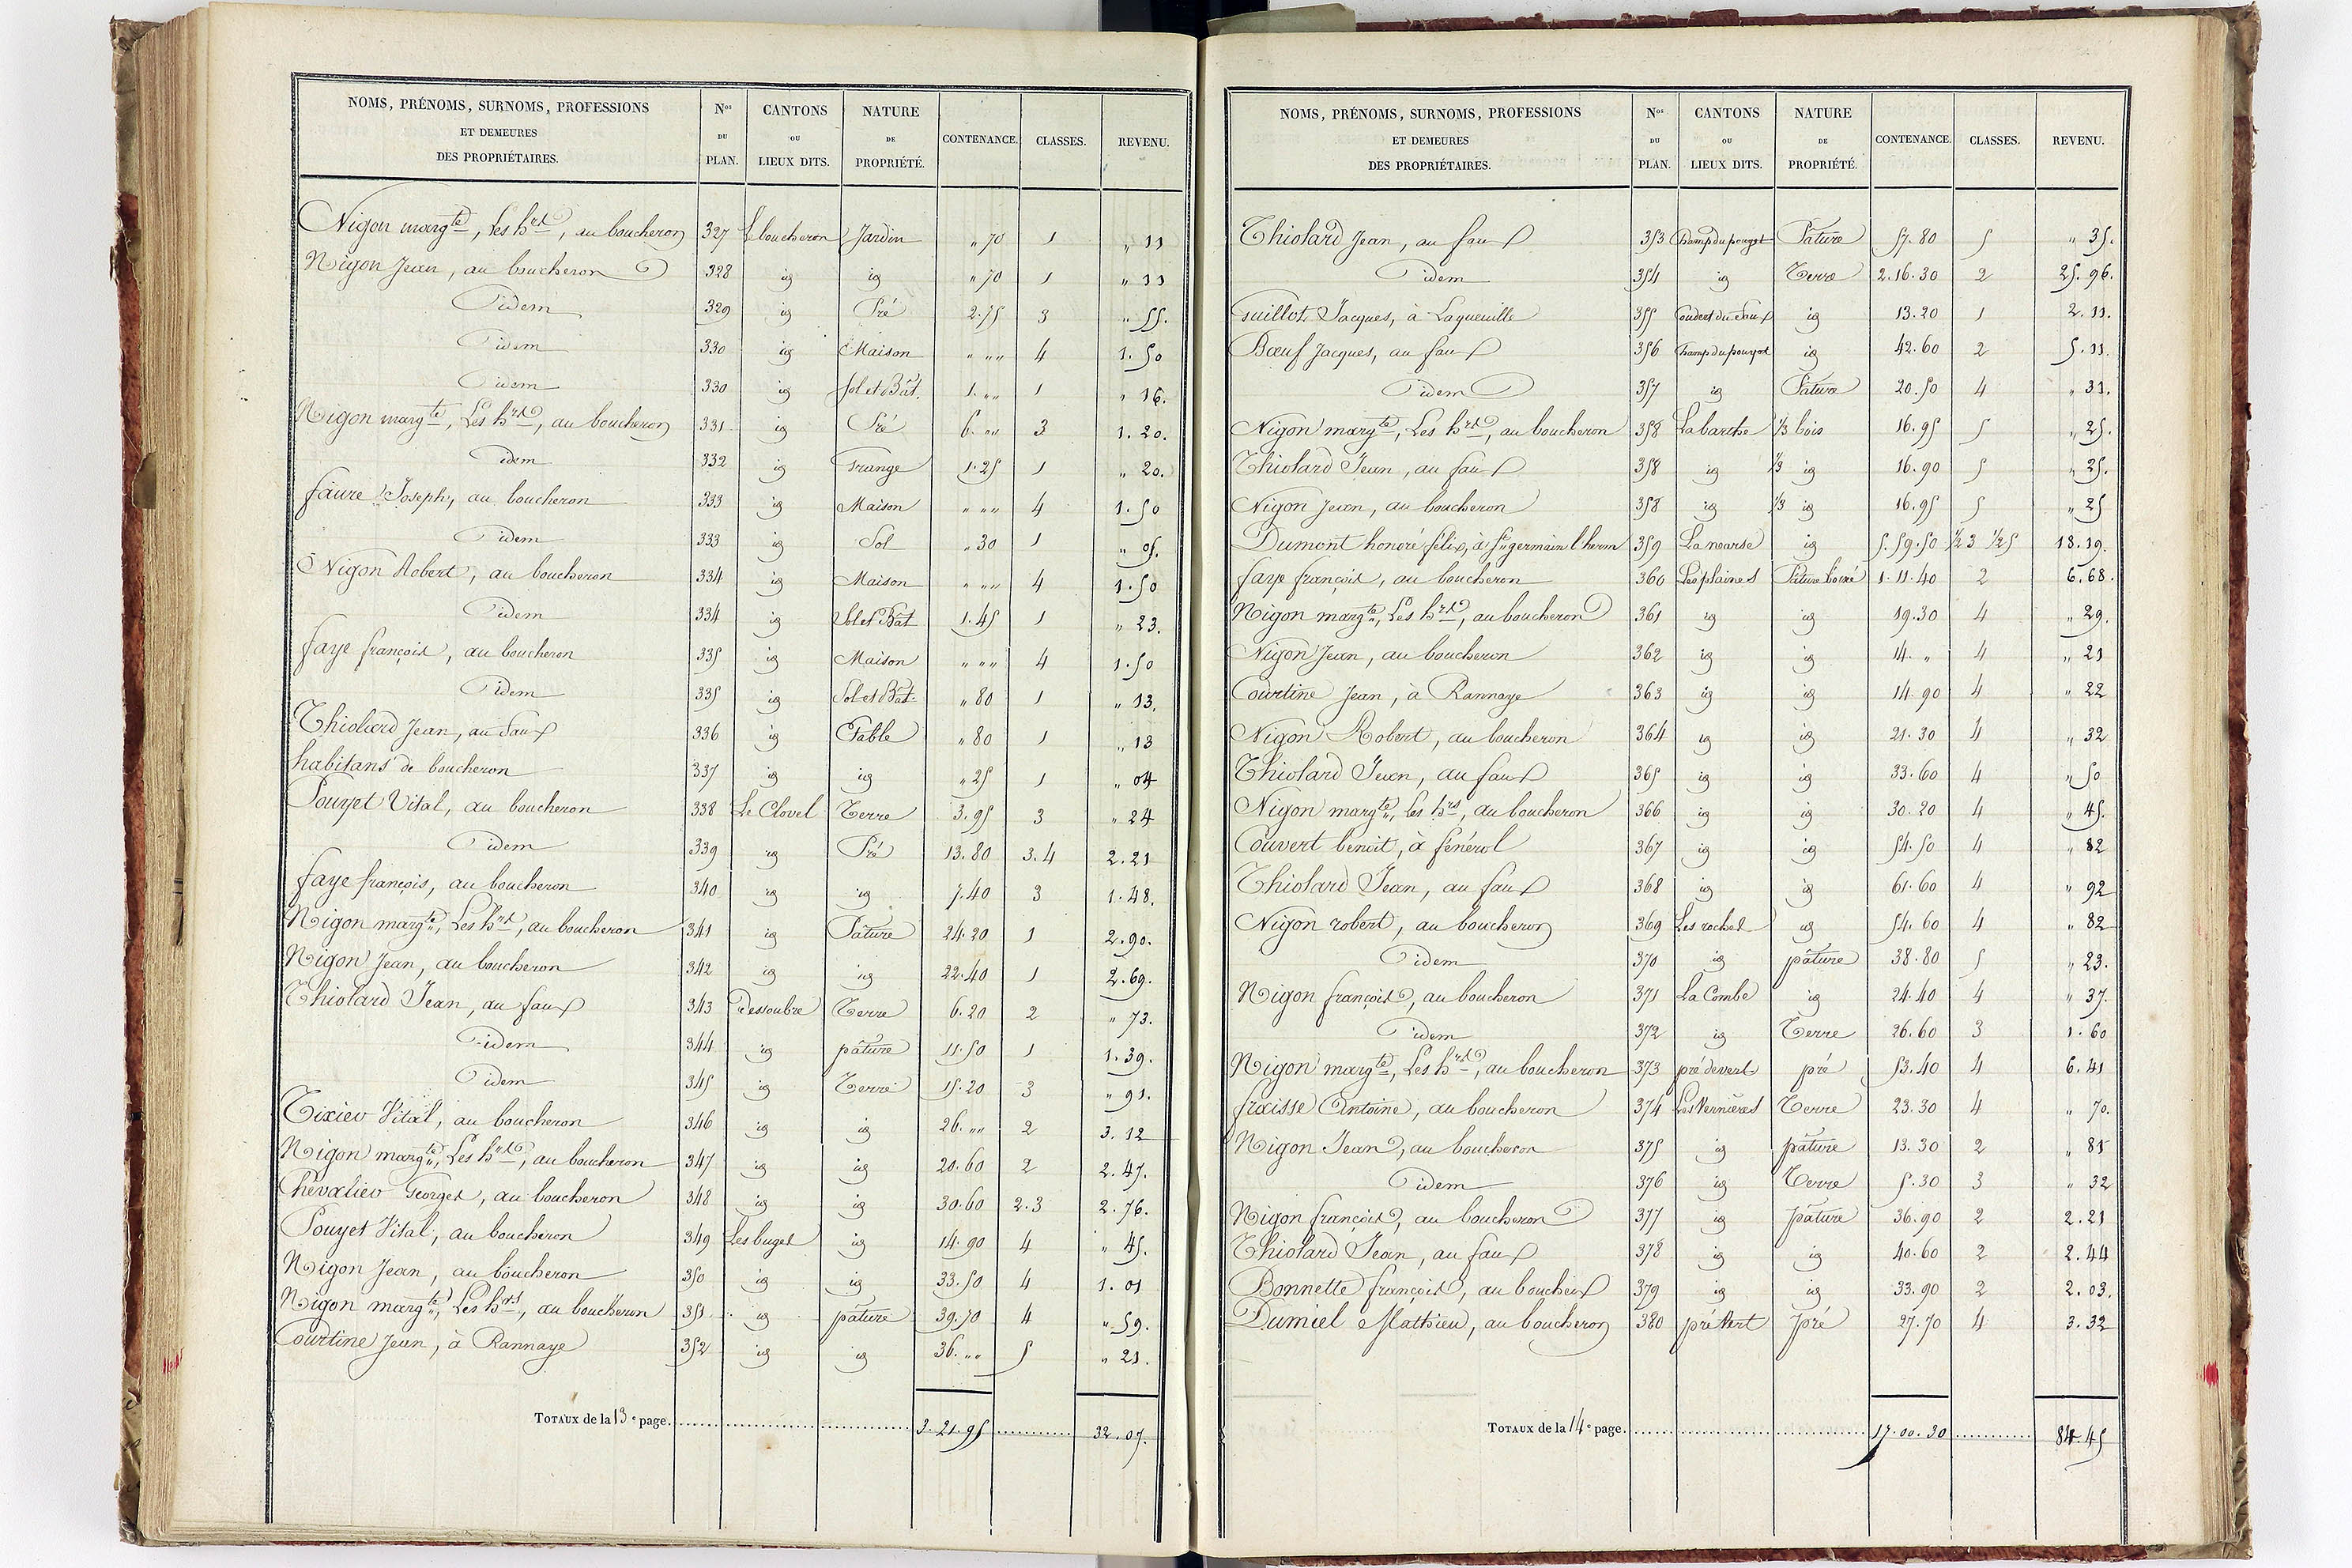 NOMS, PRÉNOMS, SURNOMS, PROFESSIONS ET DEMEURES DES PROPRIÉTAIRES. Nos DU PLAN. CANTONS OU LIEUX DITS. NATURE DE PROPRIÉTÉ. CONTENANCE. CLASSES. REVENU.
Nigon margte, Les hrs, au boucheron 327 Le boucheron Jardin " 70 1 " 11
Nigon Jean, au boucheron 328 id id " 70 1 " 11
idem 329 id Pré 2.75 3 " 55.
idem 330 id Maison " "" 4 1.50
idem 330 id Sol et Bât. 1. "" 1 " 16.
Nigon margte, Les hrs, au boucheron 331 id Pré 6. "" 3 1.20.
idem 332 id Grange 1.25 1 " 20.
faure Joseph, au boucheron 333 id Maison " "" 4 1.50
idem 333 id Sol " 30 1 " 05.
Nigon Robert, au boucheron 334 id Maison " "" 4 1.50
idem 334 id Sol et Bât 1.45 1 " 23.
faye françois, au boucheron 335 id Maison " "" 4 1.50
idem 335 id Sol et Bât. " 80 1 " 13.
Thiolard Jean, au faux 336 id Etable " 80 1 " 13
habitans de boucheron 337 id id " 25 1 " 04
Pouyet Vital, au boucheron 338 Le Clovel Terre 3.95 3 " 24
idem 339 id Pré 13.80 3.4 2.21
faye françois, au boucheron 340 id id 7.40 3 1.48.
Nigon margte, Les hrs, au boucheron 341 id Pâture 24.20 1 2.90.
Nigon Jean, au boucheron 342 id id 22.40 1 2.69.
Thiolard Jean, au faux 343 dessoubre Terre 6.20 2 " 73.
idem 344 id pâture 11.50 1 1.39.
idem 345 id Terre 15.20 3 " 91.
Tixier Vital, au boucheron 346 id id 26. "" 2 3.12
Nigon margte, Les hrs, au boucheron 347 id id 20.60 2 2.47.
Chevalier Georges, au boucheron 348 id id 30.60 2.3 2.76.
Pouyet Vital, au boucheron 349 Les buges id 14.90 4 " 45.
Nigon Jean, au boucheron 350 id id 33.50 4 1.01
Nigon margte, Les hrs, au boucheron 351 id pâture 39.70 4 " 59.
Courtine Jean, à Rannaye 352 id id 36. "" 5 " 21.
TOTAUX de la 13e page. 3.21.95 32.07.
NOMS, PRÉNOMS, SURNOMS, PROFESSIONS ET DEMEURES DES PROPRIÉTAIRES. Nos DU PLAN. CANTONS OU LIEUX DITS. NATURE DE PROPRIÉTÉ. CONTENANCE. CLASSES. REVENU.
Thiolard Jean, au faux 353 Champ du pouyet Pature 57.80 5 " 35.
idem 354 id Terre 2.16.30 2 25.96.
Guillot Jacques, à Laqueuille 355 Couderts du Faux id 13.20 1 2.11.
Bœuf Jacques, au faux 356 Champ du pouyet id 42.60 2 5.11
idem 357 id Pature 20.50 4 " 31.
Nigon margte, Les hrs, au boucheron 358 La barthe 1/3 bois 16.95 5 " 25.
Thiolard Jean, au faux 358 id 1/3 id 16.90 5 " 25.
Nigon Jean, au boucheron 358 id 1/3 id 16.95 5 " 25
Dumont honoré félix, à St germain l'herm 359 La nearse id 5.59.50 1/2 3 1/2 5 18.19.
faye françois, au boucheron 360 Les plaines Pature boisé 1.11.40 2 6.68.
Nigon margte, Les hrs, au boucheron 361 id id 19.30 4 " 29.
Nigon Jean, au boucheron 362 id id 14. " 4 " 21
Courtine Jean, à Rannaye 363 id id 14.90 4 " 22
Nigon Robert, au boucheron 364 id id 21.30 4 " 32
Thiolard Jean, au faux 365 id id 33.60 4 " 50
Nigon margte, Les hrs, au boucheron 366 id id 30.20 4 " 45.
Couvert benoit, à fénérol 367 id id 54.50 4 " 82
Thiolard Jean, au faux 368 id id 61.60 4 " 92
Nigon robert, au boucheron 369 Les roches id 54.60 4 " 82
idem 370 id pâture 38.80 5 " 23.
Nigon françois, au boucheron 371 La Combe id 24.40 4 " 37.
idem 372 id Terre 26.60 3 1.60
Nigon margte, Les hrs, au boucheron 373 pré devert pré 53.40 4 6.41
fraisse Antoine, au boucheron 374 Les Vernières Terre 23.30 4 " 70.
Nigon Jean, au boucheron 375 id pâture 13.30 2 " 81
idem 376 id Terre 5.30 3 " 32
Nigon françois, au boucheron 377 id pâture 36.90 2 2.21
Thiolard Jean, au faux 378 id id 40.60 2 2.44
Bonnette françois, au boucheix 379 id id 33.90 2 2.03.
Dumiel Mathieu, au boucheron 380 pré Vert pré 27.70 4 3.32
TOTAUX de la 14e page. 17.00.30 84.45